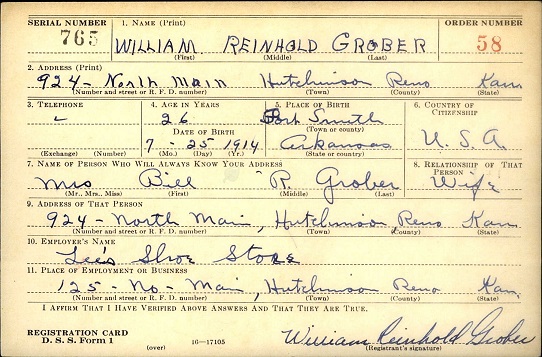 SERIAL NUMBER 1. NAME (Print) ORDER NUMBER
765 WILLIAM REINHOLD GROBER 58
(First) (Middle) (Last)
2. ADDRESS (Print)
924 - North Main Hutchinson Reno Kan
(Number and street or R. F. D. number) (Town) (County) (State)
3. TELEPHONE 4. AGE IN YEARS 5. PLACE OF BIRTH 6. COUNTRY OF CITIZENSHIP
26 Fort Smith
DATE OF BIRTH (Town or county)
7 - 25 1914 Arkansas U. S. A.
(Exchange) (Number) (Mo.) (Day) (Yr.) (State or country)
7. NAME OF PERSON WHO WILL ALWAYS KNOW YOUR ADDRESS 8. RELATIONSHIP OF THAT PERSON
Mrs Bill R. Grober Wife
(Mr., Mrs., Miss) (First) (Middle) (Last)
9. ADDRESS OF THAT PERSON
924 - North Main, Hutchinson Reno Kan
(Number and street or R. F. D. number) (Town) (County) (State)
10. EMPLOYER'S NAME
Lee's Shoe Store
11. PLACE OF EMPLOYMENT OR BUSINESS
125 - No - Main, Hutchinson Reno Kan.
(Number and street or R. F. D. number) (Town) (County) (State)
I AFFIRM THAT I HAVE VERIFIED ABOVE ANSWERS AND THAT THEY ARE TRUE.
REGISTRATION CARD
D. S. S. Form 1 (over) 16—17105 William Reinhold Grober
(Registrant's signature)